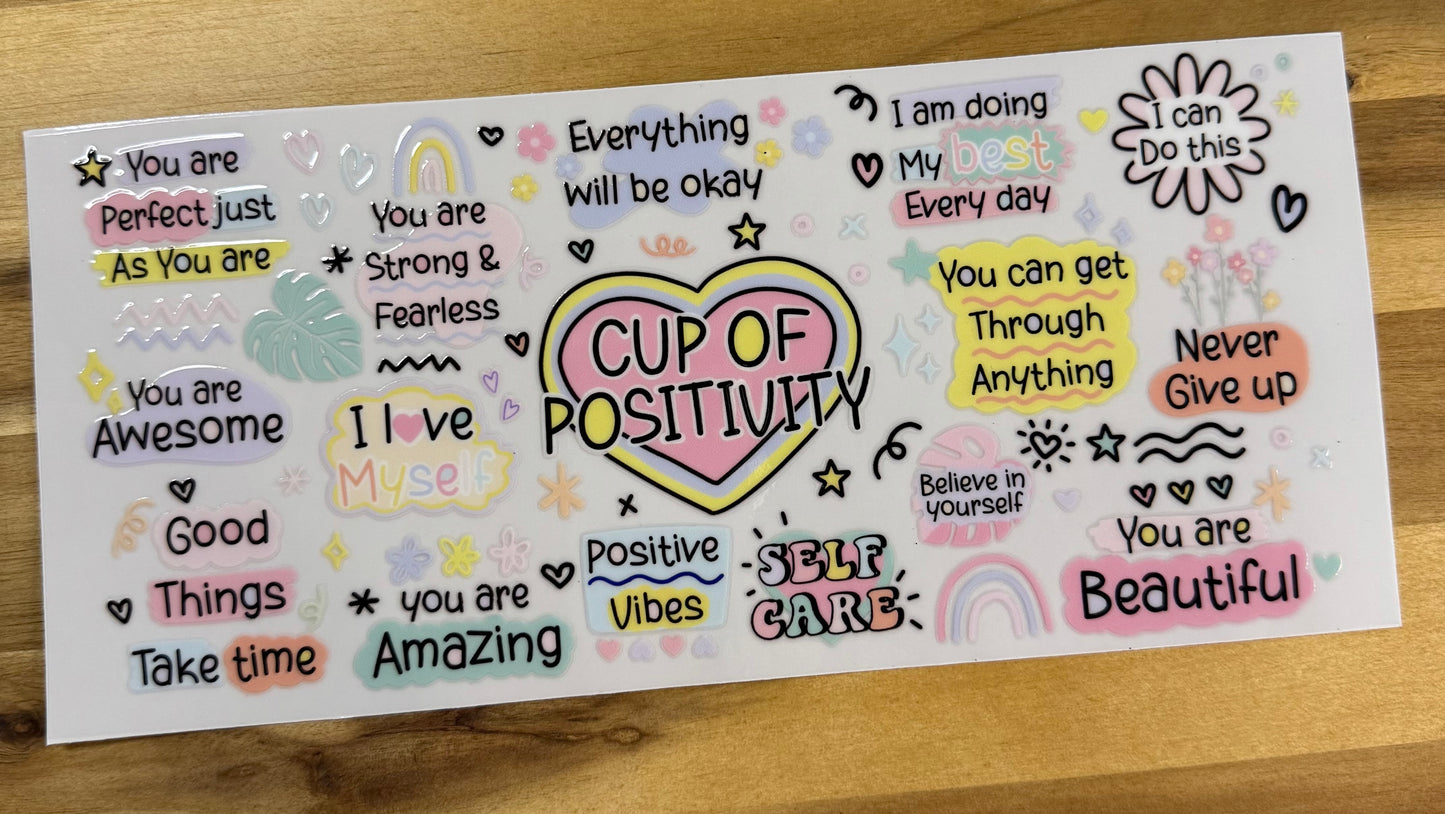 You are
Perfect just
As You are
You are
Strong &
Fearless
Everything
Will be okay
I am doing
My best
Every day
I can
Do this
CUP OF
POSITIVITY
You can get
Through
Anything
Never
Give up
You are
Awesome
I love
Myself
Believe in
yourself
Good
Things
Take time
you are
Amazing
Positive
Vibes
SELF
CARE
You are
Beautiful